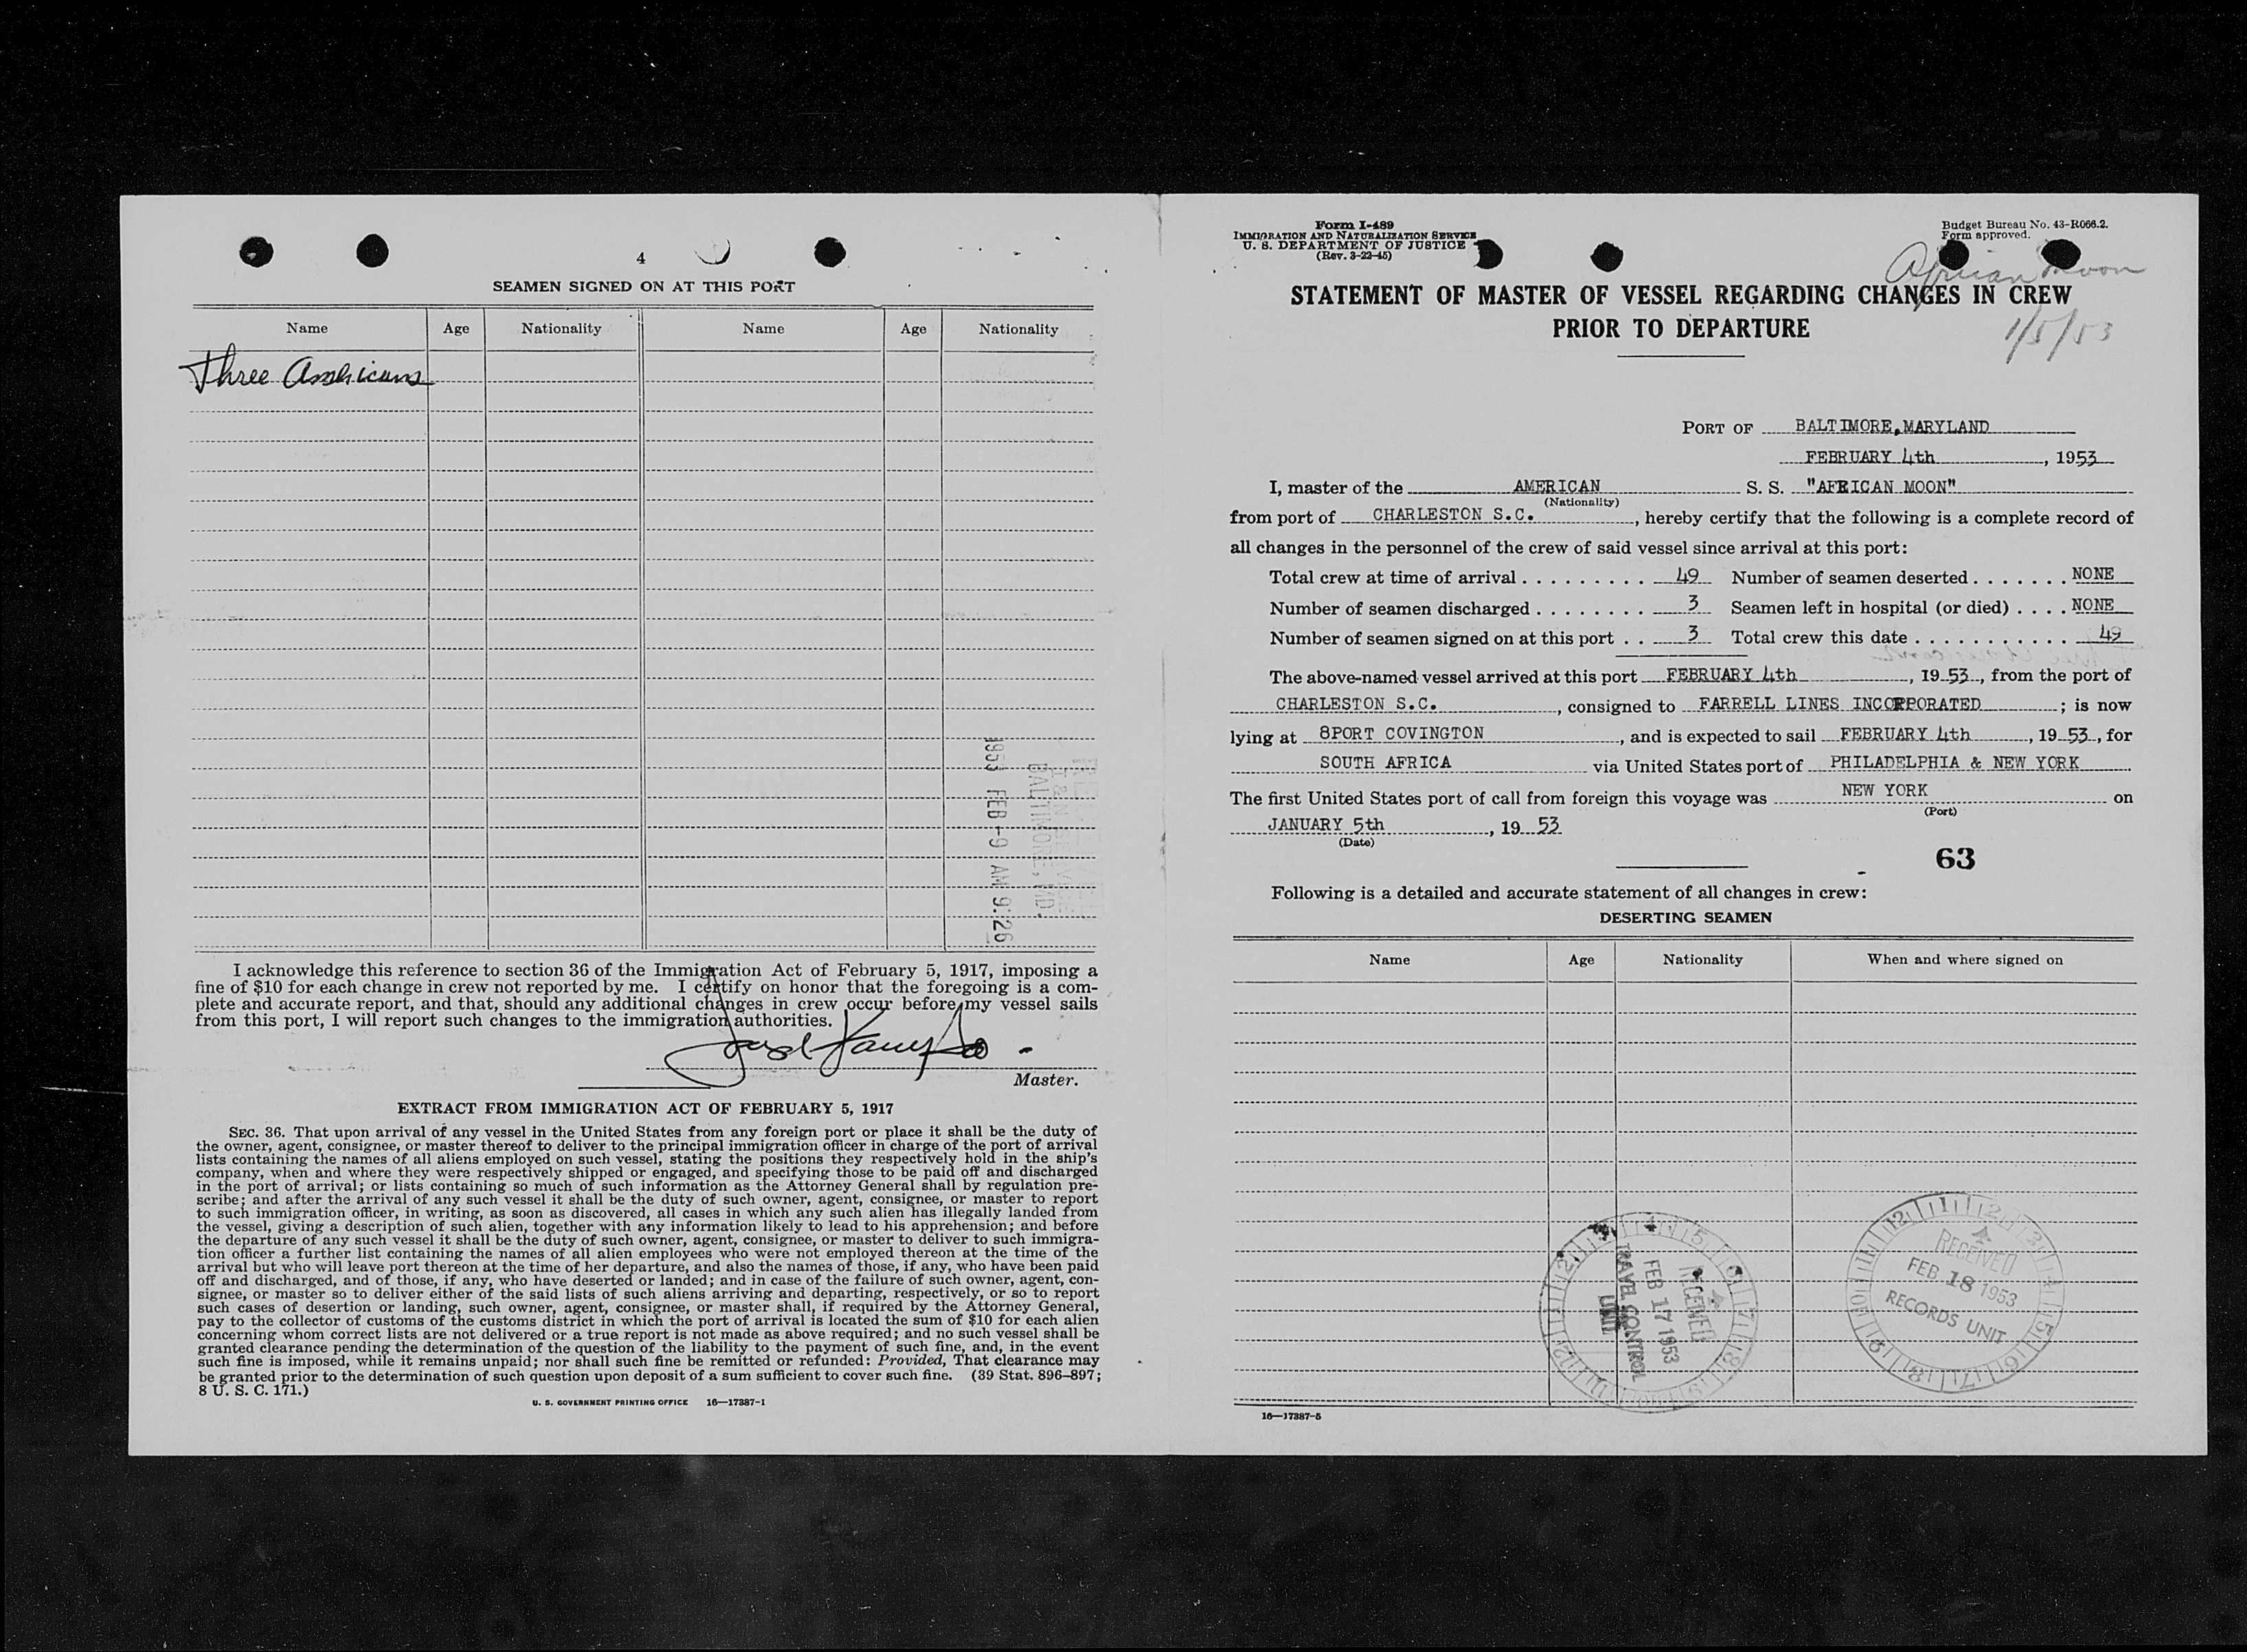 4
SEAMEN SIGNED ON AT THIS PORT
Name Age Nationality Name Age Nationality
Three Americans
1953 FEB -9 AM 9:26
BALTIMORE, MD.
I acknowledge this reference to section 36 of the Immigration Act of February 5, 1917, imposing a
fine of $10 for each change in crew not reported by me. I certify on honor that the foregoing is a com-
plete and accurate report, and that, should any additional changes in crew occur before my vessel sails
from this port, I will report such changes to the immigration authorities.
Master.
EXTRACT FROM IMMIGRATION ACT OF FEBRUARY 5, 1917
SEC. 36. That upon arrival of any vessel in the United States from any foreign port or place it shall be the duty of
the owner, agent, consignee, or master thereof to deliver to the principal immigration officer in charge of the port of arrival
lists containing the names of all aliens employed on such vessel, stating the positions they respectively hold in the ship's
company, when and where they were respectively shipped or engaged, and specifying those to be paid off and discharged
in the port of arrival; or lists containing so much of such information as the Attorney General shall by regulation pre-
scribe; and after the arrival of any such vessel it shall be the duty of such owner, agent, consignee, or master to report
to such immigration officer, in writing, as soon as discovered, all cases in which any such alien has illegally landed from
the vessel, giving a description of such alien, together with any information likely to lead to his apprehension; and before
the departure of any such vessel it shall be the duty of such owner, agent, consignee, or master to deliver to such immigra-
tion officer a further list containing the names of all alien employees who were not employed thereon at the time of the
arrival but who will leave port thereon at the time of her departure, and also the names of those, if any, who have been paid
off and discharged, and of those, if any, who have deserted or landed; and in case of the failure of such owner, agent, con-
signee, or master so to deliver either of the said lists of such aliens arriving and departing, respectively, or so to report
such cases of desertion or landing, such owner, agent, consignee, or master shall, if required by the Attorney General,
pay to the collector of customs of the customs district in which the port of arrival is located the sum of $10 for each alien
concerning whom correct lists are not delivered or a true report is not made as above required; and no such vessel shall be
granted clearance pending the determination of the question of the liability to the payment of such fine, and, in the event
such fine is imposed, while it remains unpaid; nor shall such fine be remitted or refunded: Provided, That clearance may
be granted prior to the determination of such question upon deposit of a sum sufficient to cover such fine. (39 Stat. 896–897;
8 U. S. C. 171.)
U. S. GOVERNMENT PRINTING OFFICE 16—17387-1
Form I-489
IMMIGRATION AND NATURALIZATION SERVICE
U. S. DEPARTMENT OF JUSTICE
(Rev. 3-22-45)
Budget Bureau No. 43-R066.2.
Form approved.
African Moon
STATEMENT OF MASTER OF VESSEL REGARDING CHANGES IN CREW
PRIOR TO DEPARTURE
1/5/53
PORT OF BALTIMORE, MARYLAND
FEBRUARY 4th, 1953
I, master of the AMERICAN S. S. "AFRICAN MOON"
(Nationality)
from port of CHARLESTON S.C., hereby certify that the following is a complete record of
all changes in the personnel of the crew of said vessel since arrival at this port:
Total crew at time of arrival . . . . . . . . . 49 Number of seamen deserted . . . . . . . NONE
Number of seamen discharged . . . . . . . . 3 Seamen left in hospital (or died) . . . . NONE
Number of seamen signed on at this port . . 3 Total crew this date . . . . . . . . . . . 49
The above-named vessel arrived at this port FEBRUARY 4th, 19 53, from the port of
CHARLESTON S.C., consigned to FARRELL LINES INCORPORATED; is now
lying at 8PORT COVINGTON, and is expected to sail FEBRUARY 4th, 19 53, for
SOUTH AFRICA via United States port of PHILADELPHIA & NEW YORK
The first United States port of call from foreign this voyage was NEW YORK on
(Port)
JANUARY 5th, 19 53
(Date)
63
Following is a detailed and accurate statement of all changes in crew:
DESERTING SEAMEN
Name Age Nationality When and where signed on
RECEIVED
FEB 17 1953
TRAVEL CONTROL
UNIT
RECEIVED
FEB 18 1953
RECORDS UNIT
16—17387-5